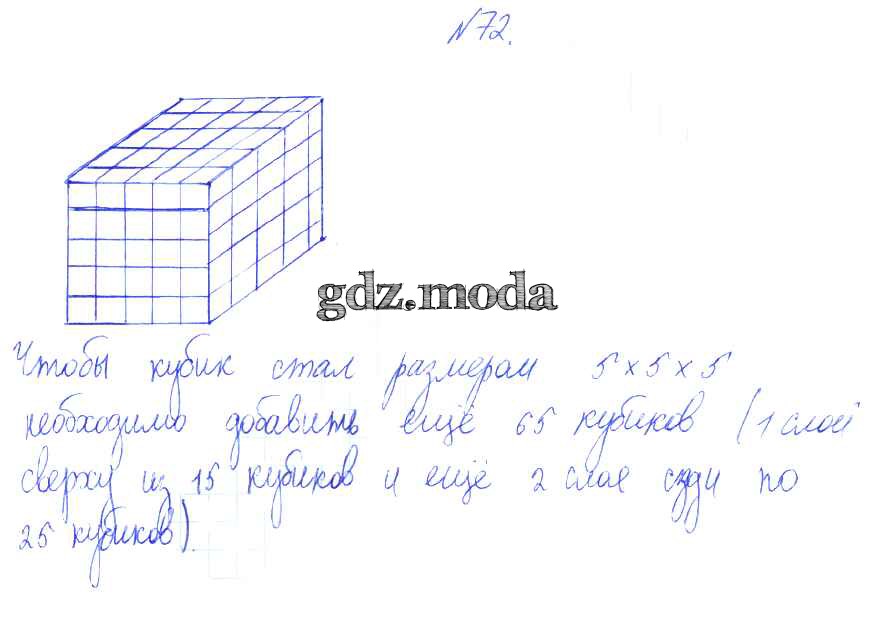 №72.
gdz.moda
Чтобы кубик стал размером 5×5×5
необходимо добавить ещё 65 кубиков (1 слой
сверху из 15 кубиков и ещё 2 слоя сзди по
25 кубиков)